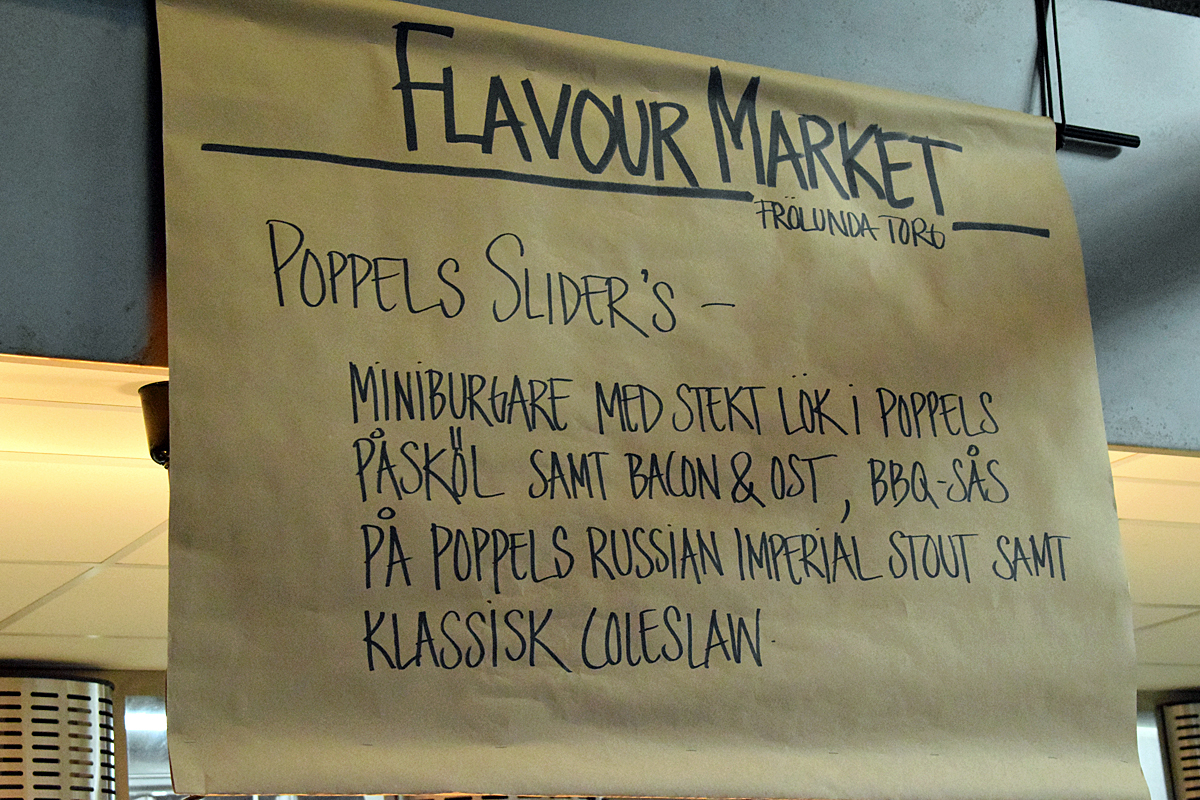 FLAVOUR MARKET
FRÖLUNDA TORG
POPPELS SLIDER'S –
MINIBURGARE MED STEKT LÖK I POPPELS
PÅSKÖL SAMT BACON & OST, BBQ-SÅS
PÅ POPPELS RUSSIAN IMPERIAL STOUT SAMT
KLASSISK COLESLAW.